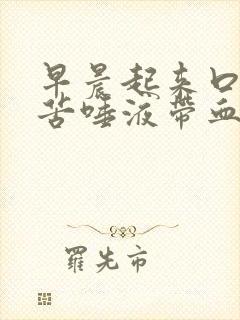 早晨起来口
苦唾液带血
羅先市